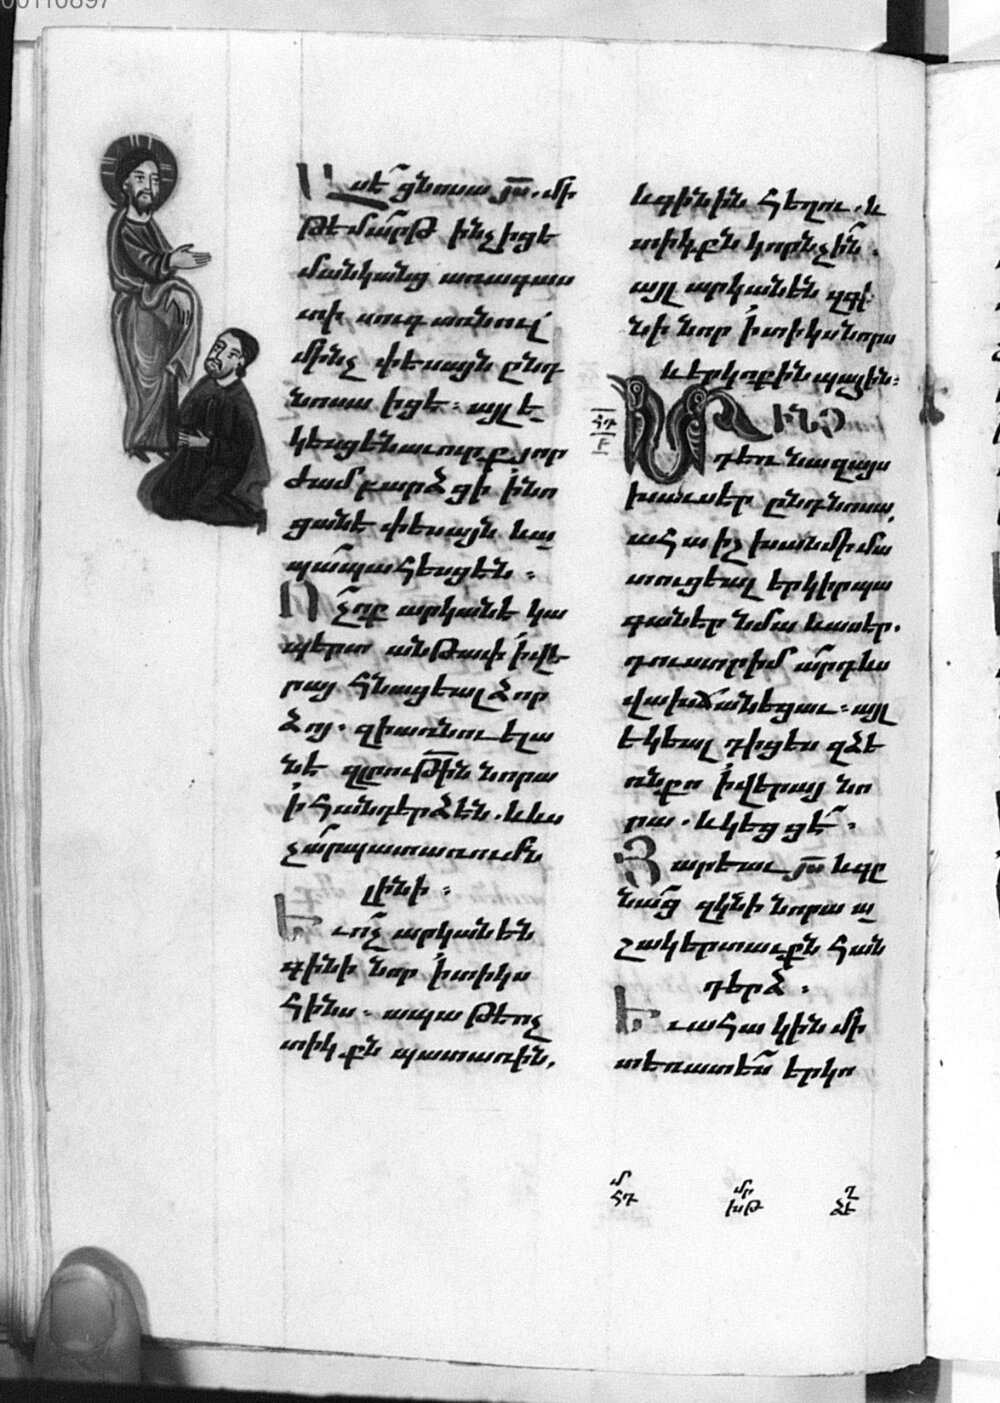 00110897
Ասէ ցնոսա յս. մի
թէ մարթ ինչ իցե
մանկանց առագաս
տի սուգ առնուլ
մինչ փեսայն ընդ
նոսա իցե. այլ ե
կեսցեն աւուրք յոր
ժամ բարձցի ի նո
ցանէ փեսայն և ա
պա պահեսցեն։
Ոչ ոք արկանէ կա
պերտ անթափ ի վե
րայ հնացեալ ձոր
ձոյ. զի առնու ելա
նէ զլրութիւն նորա
ի հանդերձէն. և ևս
չար պատառումն
լինի։
Եւ ոչ արկանեն
գինի նոր ի տիկս
հինս. ապա թե ոչ
տիկքն պատառին.
և գինին հեղու. և
տիկքն կորնչին.
այլ արկանեն զգի
նի նոր ի տիկս նորս
և երկոքին պահին։
Մինչ
դեռ նա զայս
խաւսէր ընդ նոսա
ահա իշխան մի մա
տուցեալ երկիր պա
գանէր նմա և ասէր.
դուստր իմ արդ ևս
վախճանեցաւ. այլ
եկեալ դիցես զձե
ռն քո ի վերայ նո
րա. և կեցցէ։
Յարեաւ յս և գը
նաց զկնի նորա ա
շակերտաւքն հան
դերձ։
Եւ ահա կին մի
տեռատես երկո